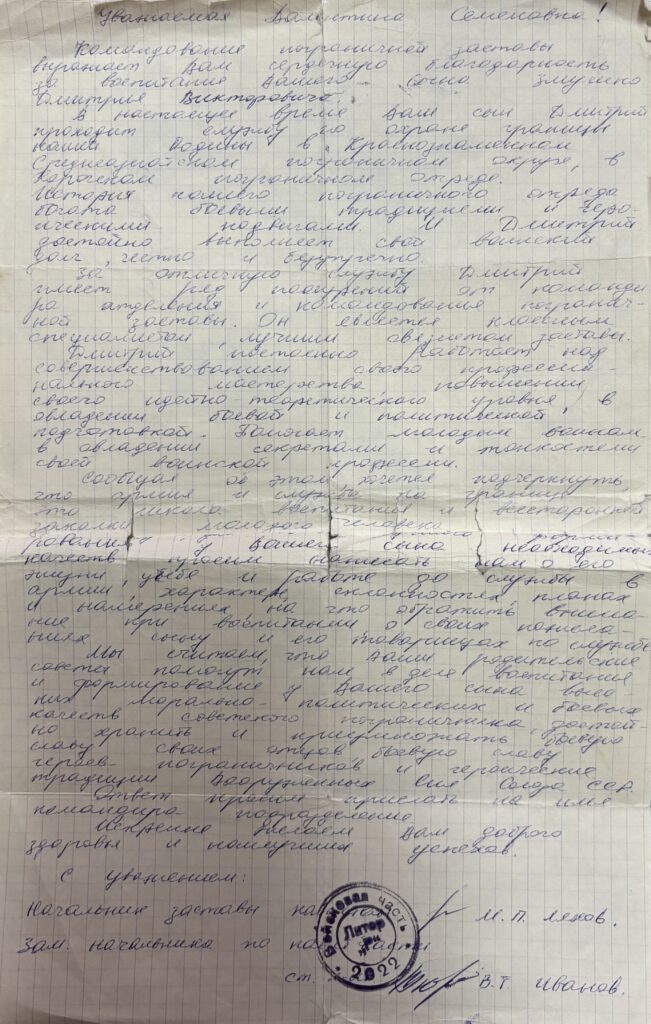 Уважаемая Валентина Семеновна!
Командование пограничной заставы
выражает Вам сердечную благодарность
за воспитание Вашего сына
Дмитрия Викторовича.
В настоящее время Ваш сын Дмитрий
проходит службу по охране границы
нашей Родины в Краснознаменном
Среднеазиатском пограничном округе, в
пограничном отряде.
История нашего пограничного отряда
богата боевыми традициями и геро-
ическими подвигами. И Дмитрий
достойно выполняет свой воинский
долг, честно и безупречно.
За отличную службу Дмитрий
имеет ряд поощрений от команди
ра отделения и командования погранич-
ной заставы. Он является классным
специалистом, лучшим связистом заставы.
Дмитрий постоянно работает над
совершенствованием своего профессио-
нального мастерства повышении
своего идейно-теоретического уровня, в
овладении боевой и политической
подготовкой. Помогает молодым воинам
в овладении секретами и тонкостями
своей воинской профессии.
Сообщая об этом хочется подчеркнуть
что армия и служба на границе
это школа воспитания и всесторонней
закалки молодого человека
у Вашего сына необходимых
качеств просим написать нам о его
жизни, учебе и работе до службы в
армии, характере, склонностях, планах
и намерениях, на что обратить внима-
ние при воспитании о своих пожела-
ниях сыну и его товарищах по службе
Мы считаем, что Ваши родительские
советы помогут нам в деле воспитания
и формирование у Вашего сына высо-
ких морально-политических и боевых
качеств советского пограничника, достой-
но хранить и приумножать боевую
славу своих отцов боевую славу
героев-пограничников и героические
традиции Вооруженных Сил Союза ССР.
Ответ просим прислать на имя
командира подразделения
Искренне желаем Вам доброго
здоровья и наилучших успехов.
С уважением:
Начальник заставы М.П.
Зам. начальника по
ст. В.Т. Иванов.
Войсковая часть
Литер
2022